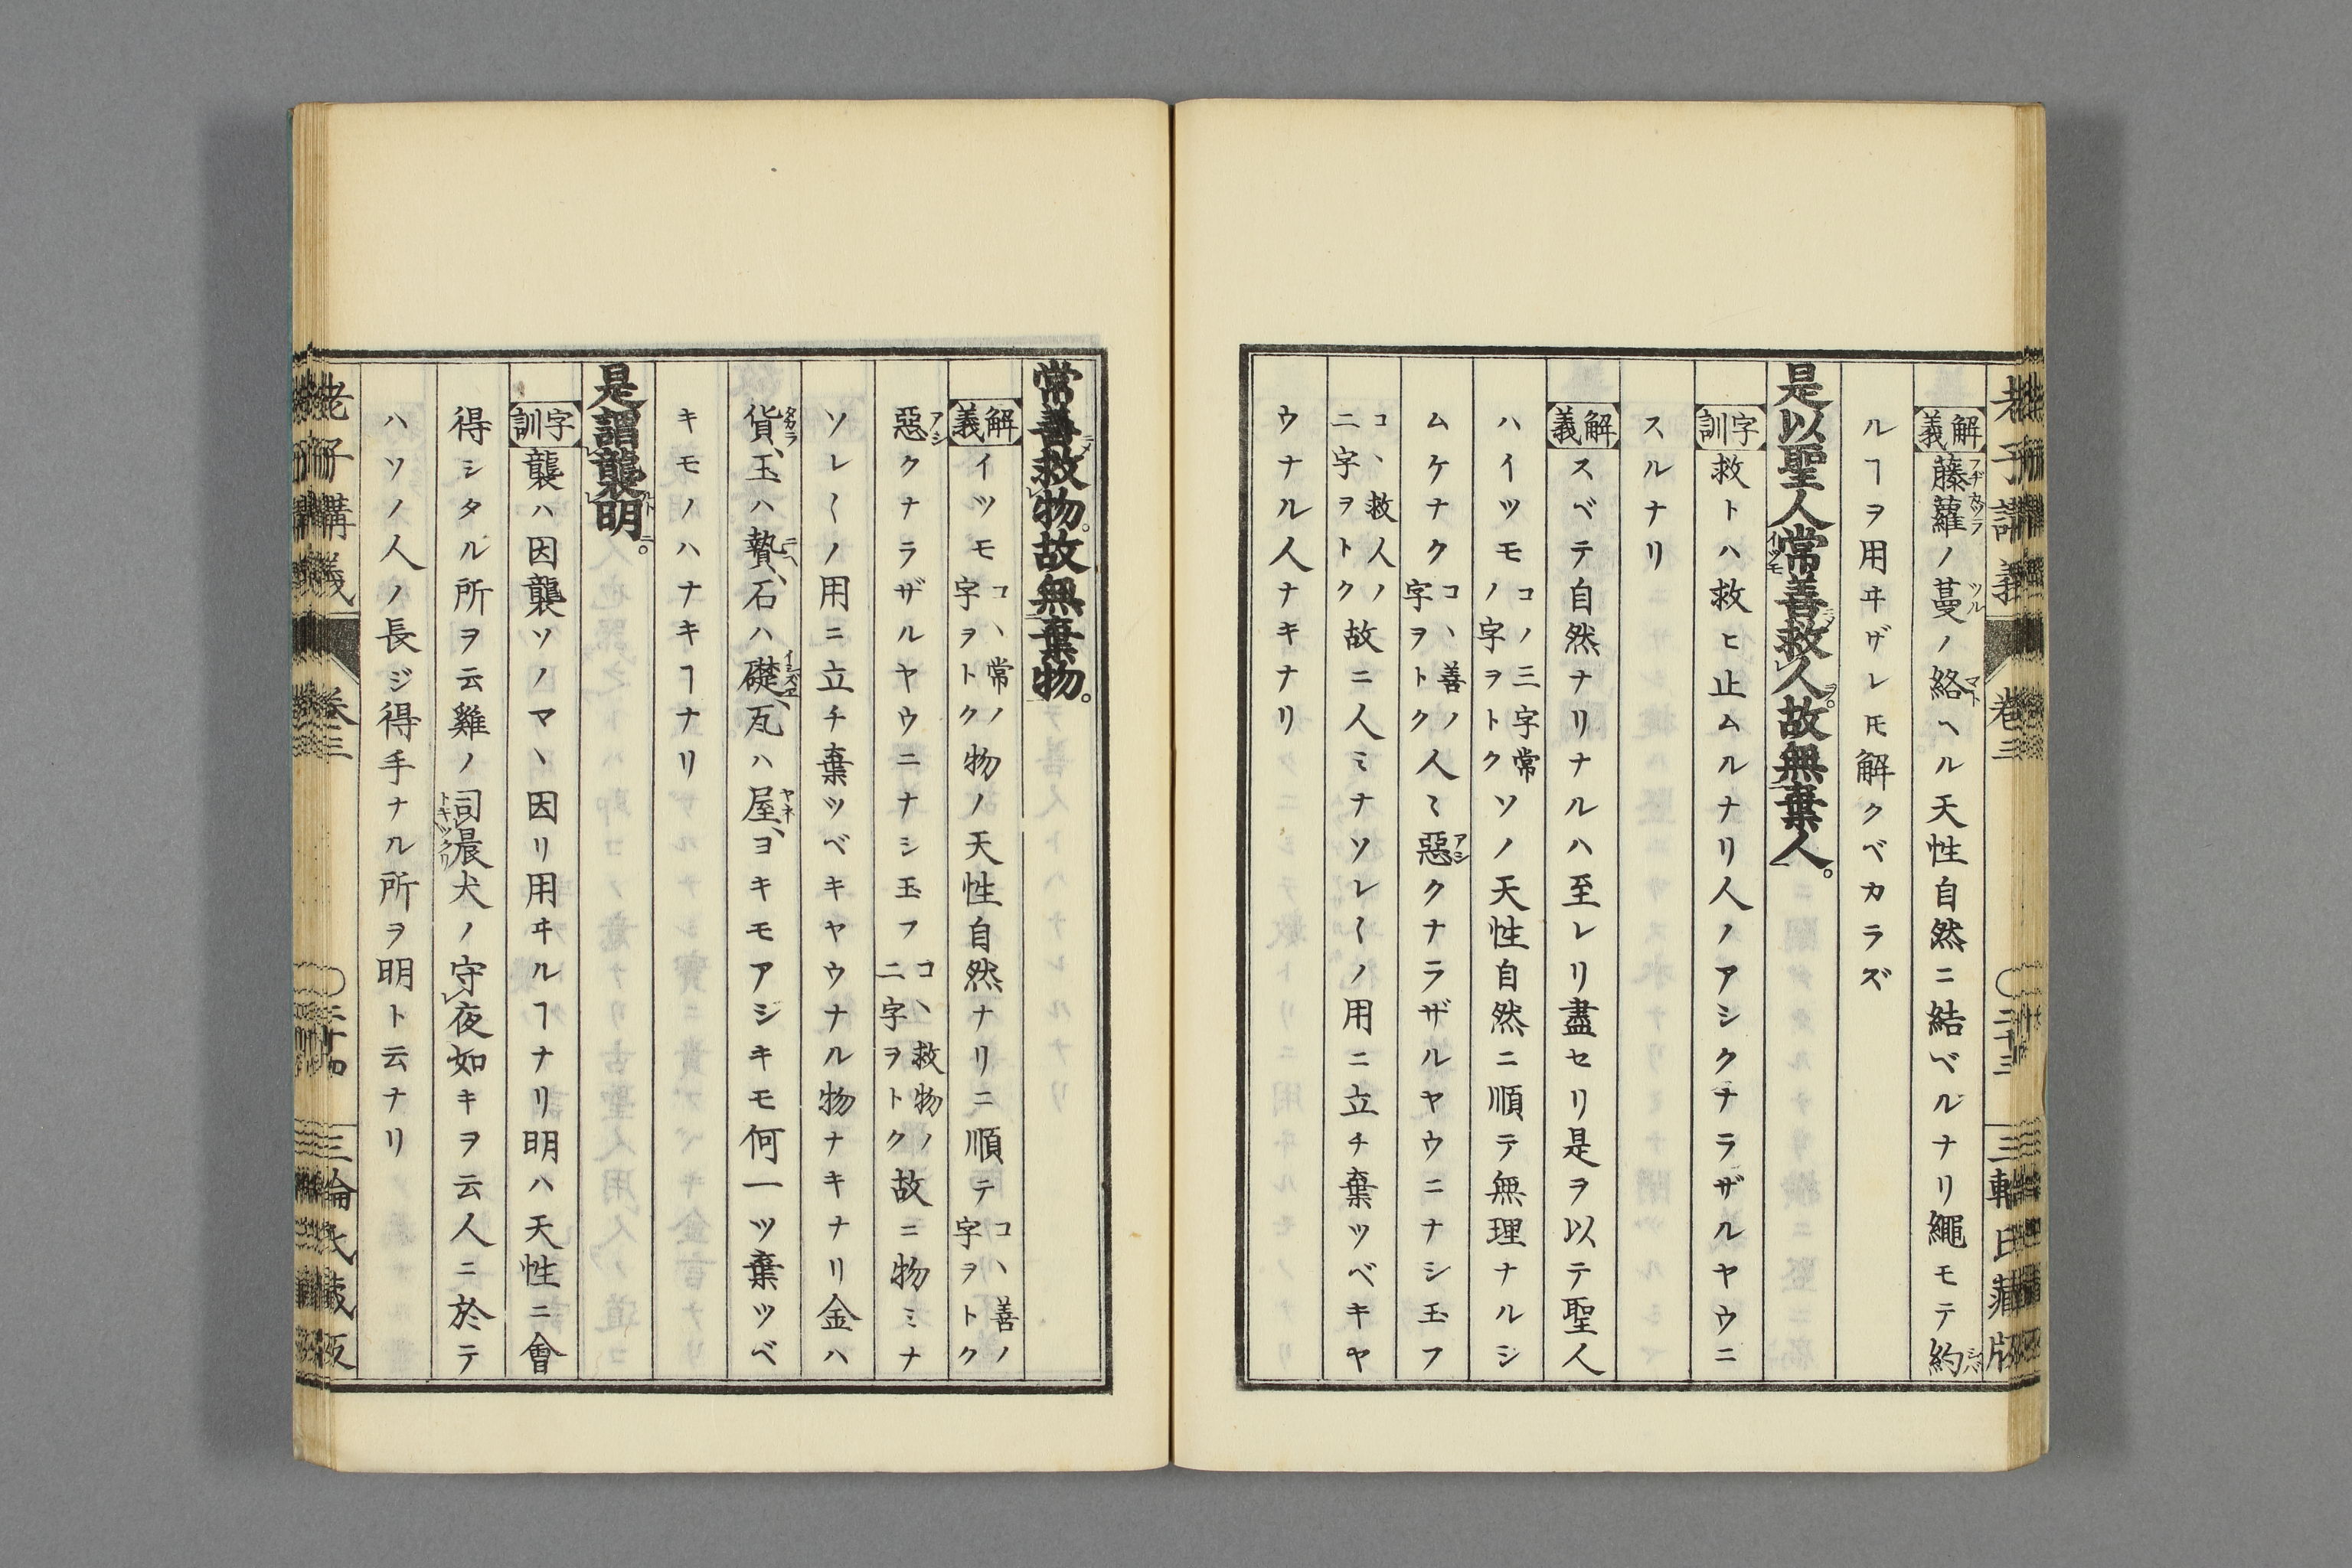 老子講義 卷三 二十三 三輪氏藏版
解義 藤蘿ノ蔓ノ絡ヘル天性自然ニ結ベルナリ繩モテ約
ルヿヲ用ヰザレ𪜈解クベカラズ
是以聖人常善救人。故無棄人。
字訓 救トハ救ヒ止ムルナリ人ノアシクナラザルヤウニ
スルナリ
解義 スベテ自然ナリナルハ至レリ盡セリ是ヲ以テ聖人
ハイツモコノ三字常ノ字ヲトクソノ天性自然ニ順テ無理ナルシ
ムケナクコヽ善ノ字ヲトク人〻惡クナラザルヤウニナシ玉フ
コヽ救人ノ二字ヲトク故ニ人ミナソレ〳〵ノ用ニ立チ棄ツベキヤ
ウナル人ナキナリ
常善救物。故無棄物。
解義 イツモコヽ常ノ字ヲトク物ノ天性自然ナリニ順テコヽ善ノ字ヲトク
惡クナラザルヤウニナシ玉フコヽ救物ノ二字ヲトク故ニ物ミナ
ソレ〳〵ノ用ニ立チ棄ツベキヤウナル物ナキナリ金ハ
貨、玉ハ贄、石ハ礎、瓦ハ屋、ヨキモアシキモ何一ツ棄ツベ
キモノハナキヿナリ
是謂襲明。
字訓 襲ハ因襲ソノマヽ因リ用ヰルヿナリ明ハ天性ニ會
得シタル所ヲ云雞ノ司晨犬ノ守夜如キヲ云人ニ於テ
ハソノ人ノ長ジ得手ナル所ヲ明ト云ナリ
老子講義 卷三 二十四 三輪氏藏版